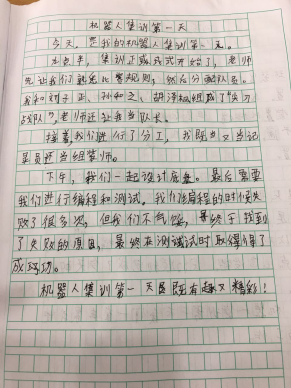 机器人集训第一天
今天,是我的机器人集训第一天。
九点半,集训正式开始了,老师
先让我们熟悉比赛规则,然后分配队员。
我和刘子正、孙和之、胡泽枫组成了“
战队”,老师还让我当队长。
接着我们进行了分工,我既当又当记
录员还当组装师。
下午,我们一起设计底盘。最后需要
我们进行编程和测试。我们编程的时候失
败了很多次,但我们不气馁,最终于找到
了失败的原因,最终在测试时取得了
成功。
机器人集训第一天既有趣又精彩!